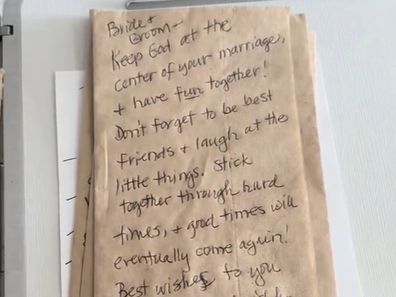 Bride +
Groom -
Keep God at the
center of your marriage,
+ have fun together!
Don't forget to be best
friends + laugh at the
little things. Stick
together through hard
times, + good times will
eventually come again!
Best wishes to you